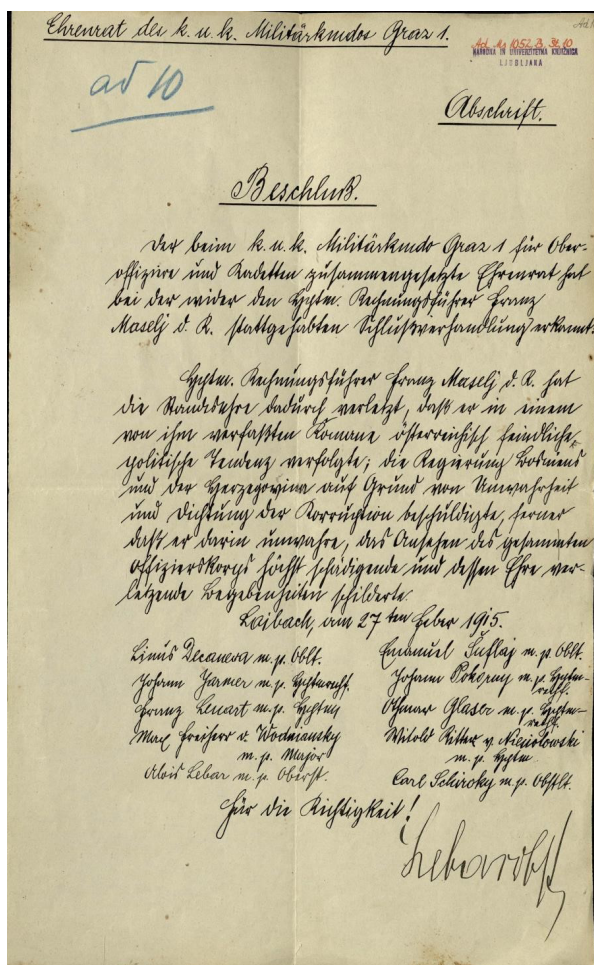 Ehrenrat des k. u. k. Militärkmdos Graz 1.
Ad. No 1052 B. 31. 10
NARODNA IN UNIVERZITETNA KNJIŽNICA
LJUBLJANA
ad 10
Abschrift.
Beschluß.
Der beim k. u. k. Militärkmdo Graz 1 für Ober-
offiziere und Kadetten zusammengesetzte Ehrenrat hat
bei der wider den Hptm. Rechnungsführer Franz
Maselj d. R. stattgehabten Schlußverhandlung erkannt:
Hptm. Rechnungsführer Franz Maselj d. R. hat
die Standesehre dadurch verletzt, daß er in einem
von ihm verfaßten Romane österreichisch feindliche,
politische Tendenz verfolgte; die Regierung Bosniens
und der Herzegovina auf Grund von Unwahrheit
und Dichtung der Korruption beschuldigte, ferner
daß er darin unwahre, das Ansehen des gesammten
Offizierskorps höchst schädigende und dessen Ehre ver-
letzende Begebenheiten schilderte.
Laibach, am 27ten Feber 1915.
Linus Decaneva m. p. Oblt.
Emanuel Sufflaj m. p. Oblt.
Johann m. p. Hptmrechf.
Johann Pokorny m. p. Hptm-
rechf.
Franz Lenart m. p. Hptm
Othmar Glaser m. p. Hptm-
rechf.
Max Freiherr v. Wodniansky
m. p. Major
Witold Ritter v.
m. p. Hptm
Alois Lebar m. p. Oberst.
Carl m. p. Obstlt.
Für die Richtigkeit!
Lebar Obst